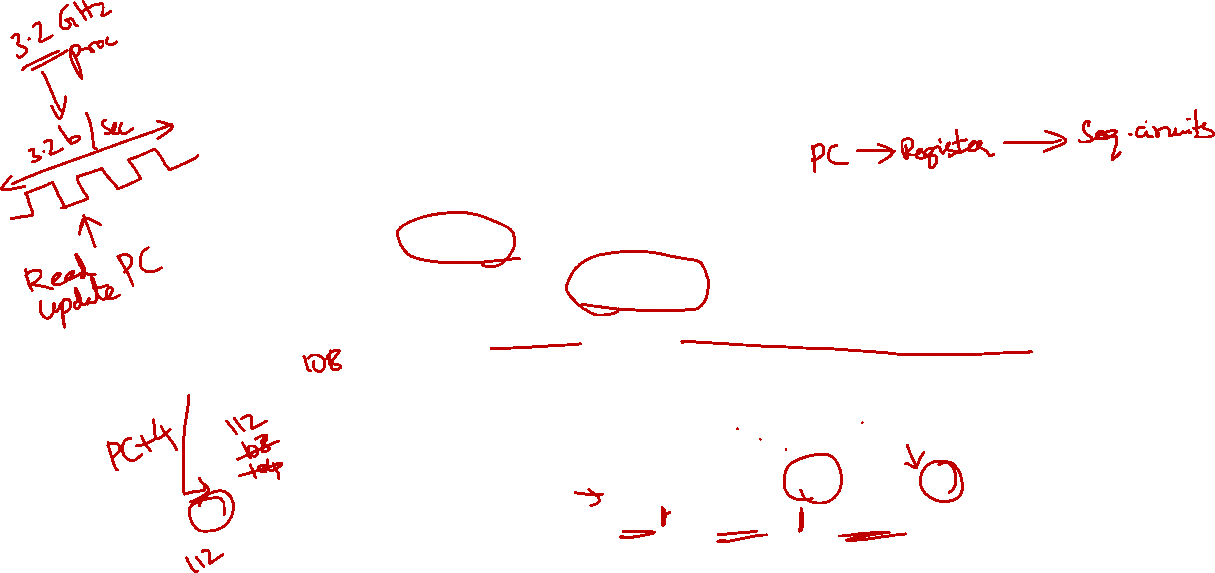 3.2 GHz
proc
3.2 b/sec
Read PC
update
PC → Register → Seq. circuits
108
PC+4
112
108
104
112